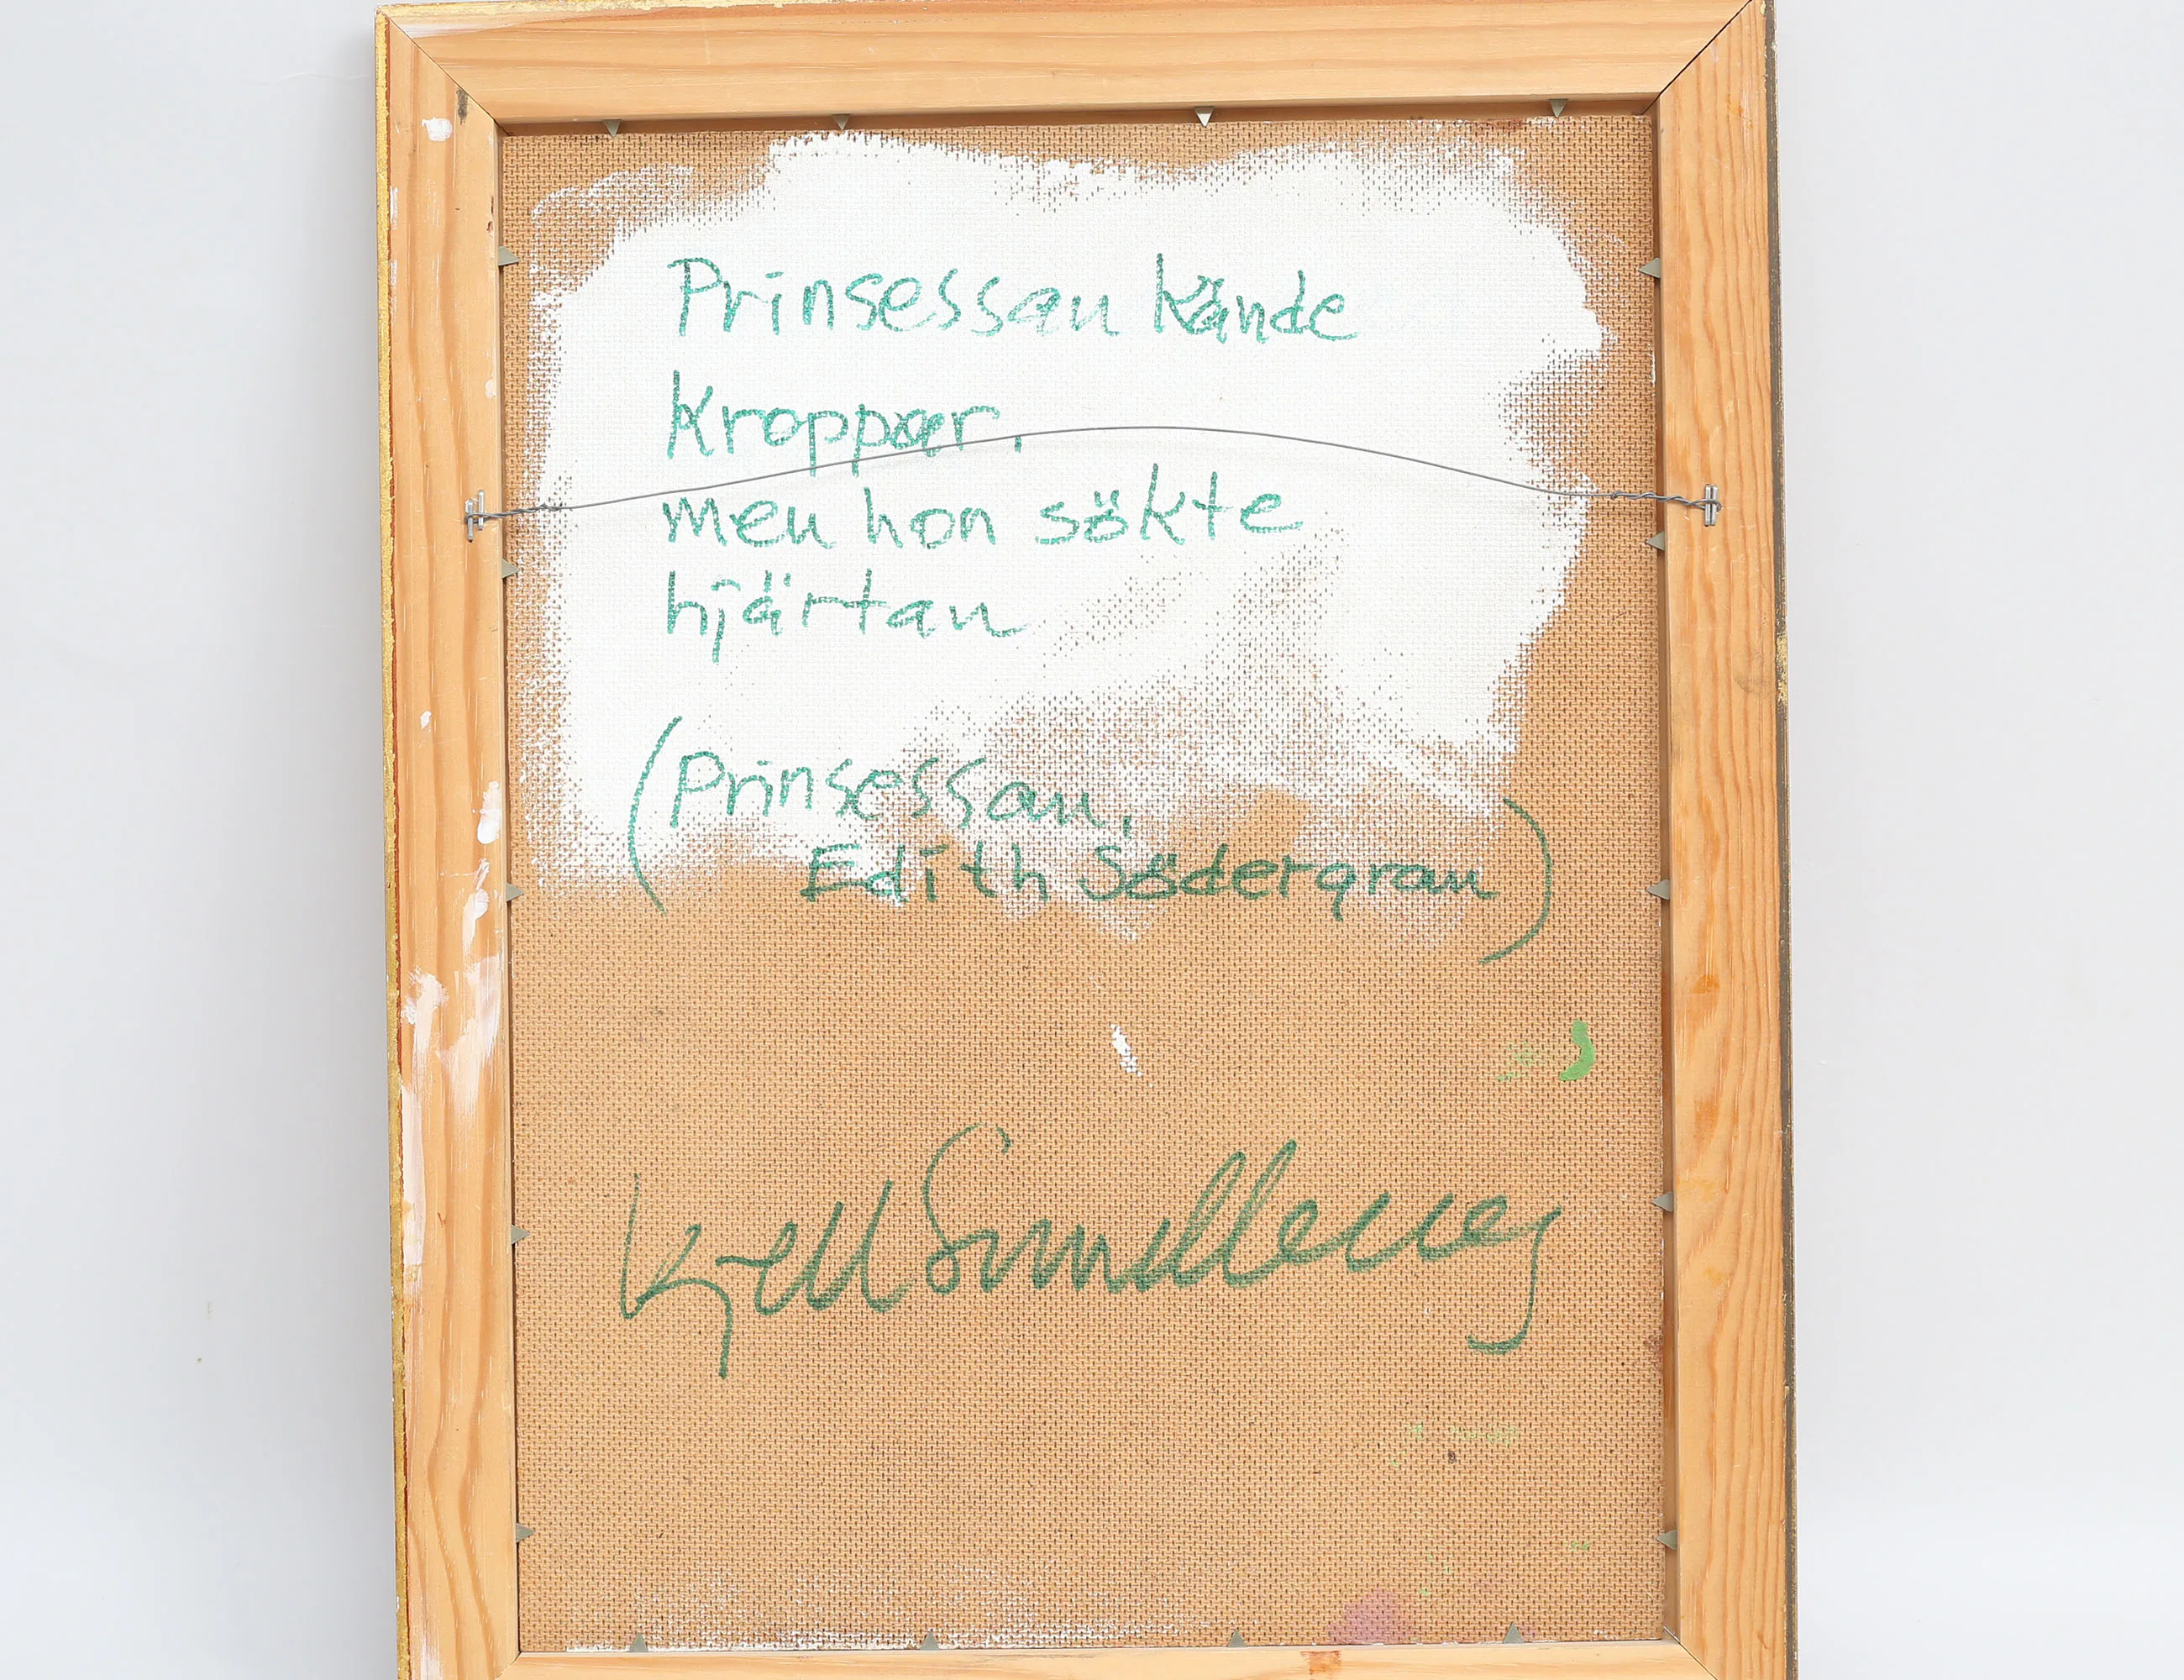 Prinsessan kände
kroppar,
men hon sökte
hjärtan
(Prinsessan,
Edith Södergran)
Kjell